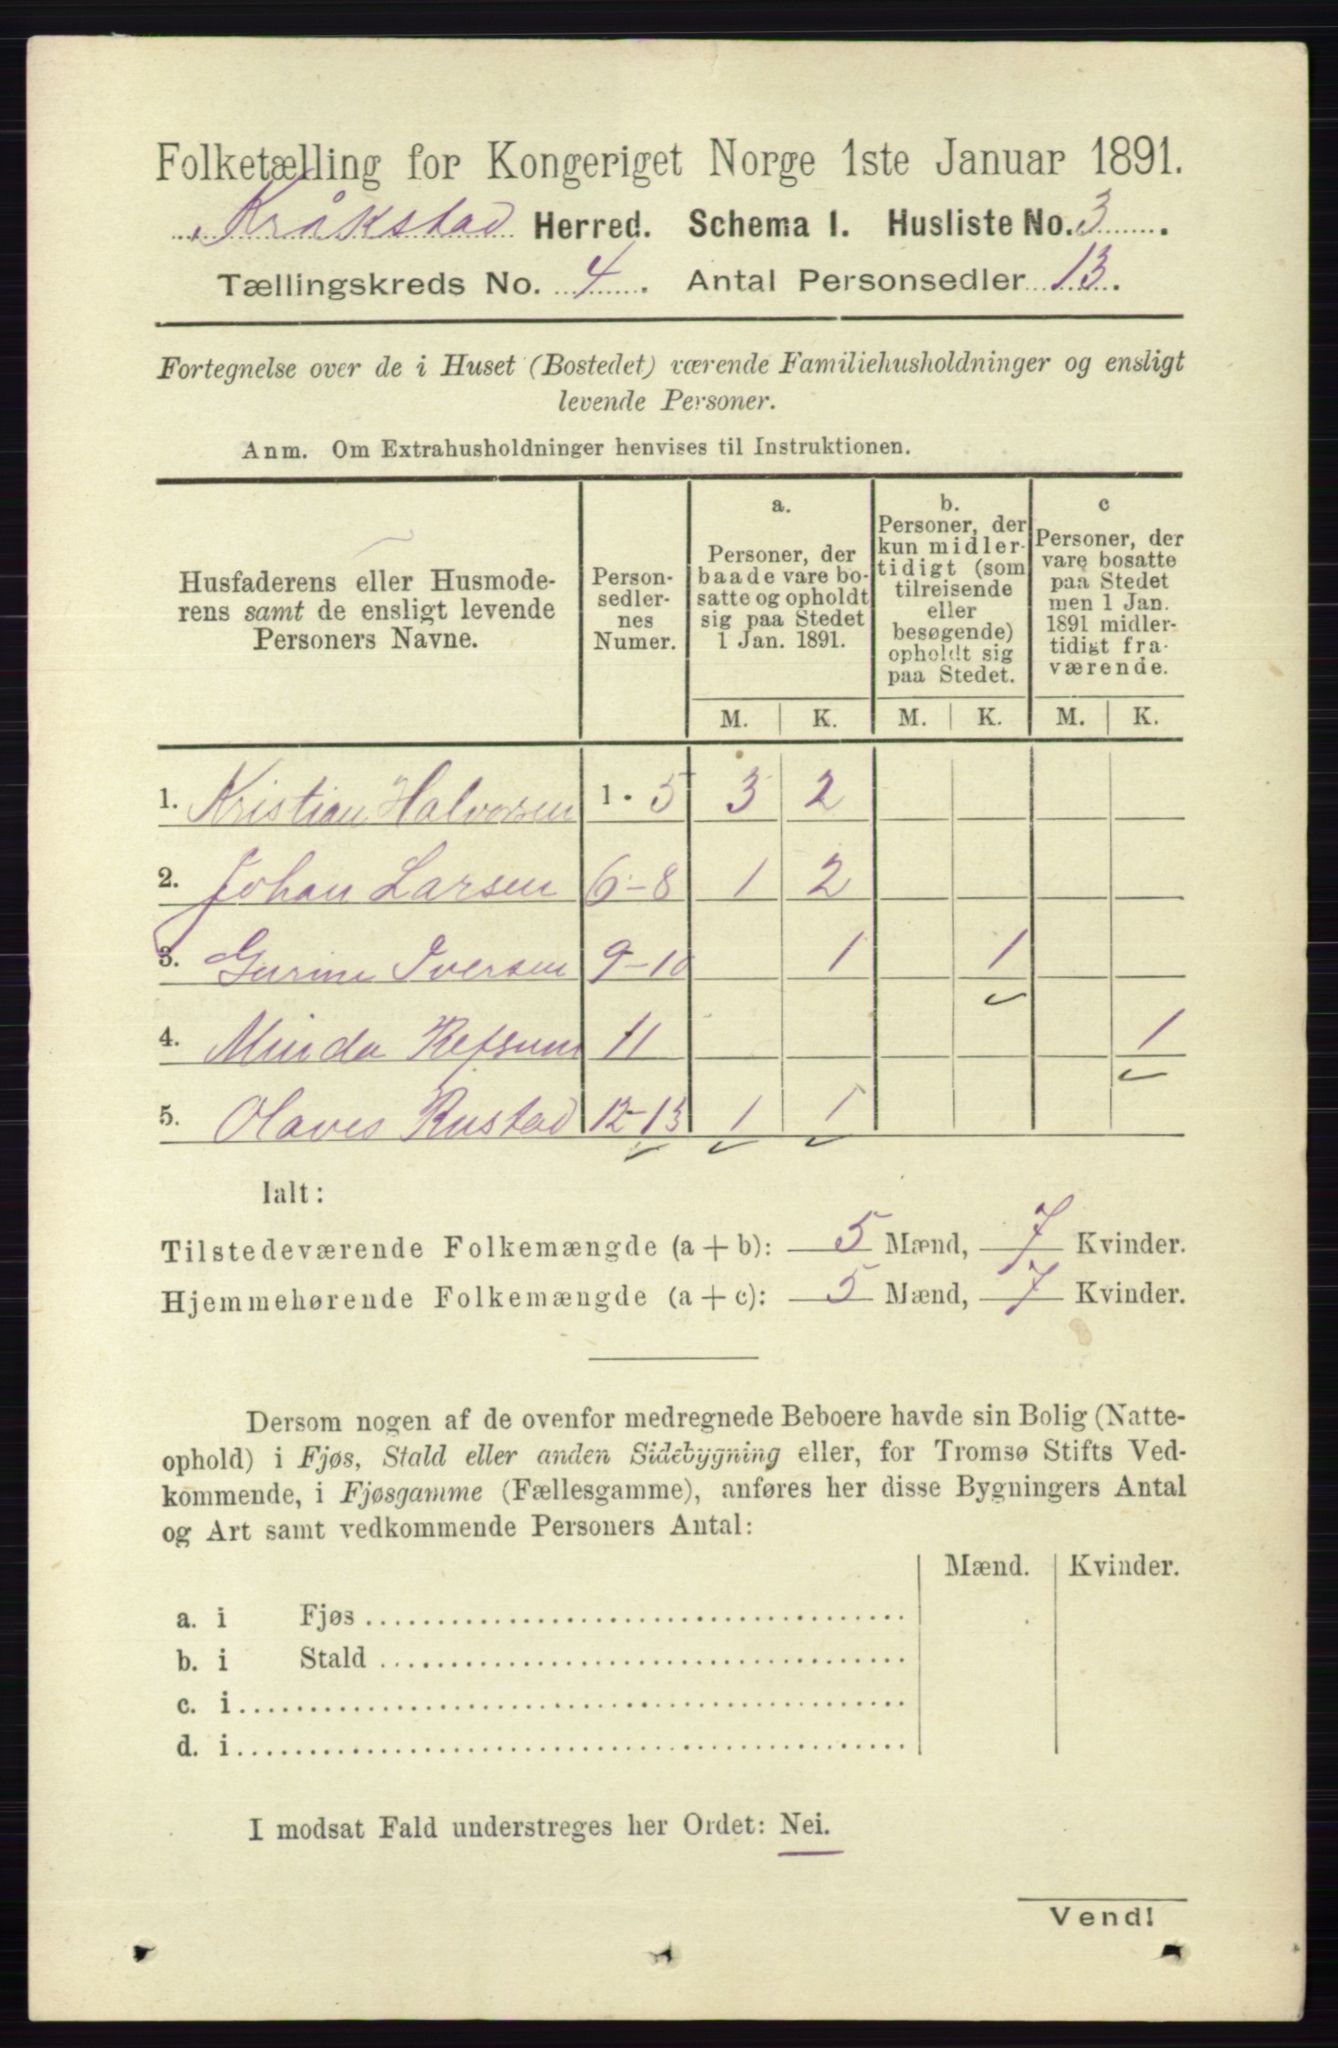 Folketælling for Kongeriget Norge 1ste Januar 1891.
Kråkstad Herred. Schema I. Husliste No. 3.
Tællingskreds No. 4. Antal Personsedler 13.
Fortegnelse over de i Huset (Bostedet) værende Familiehusholdninger og ensligt
levende Personer.
Anm. Om Extrahusholdninger henvises til Instruktionen.
Husfaderens eller Husmode-
rens samt de ensligt levende
Personers Navne.
Person-
sedler-
nes
Numer.
a.
Personer, der
baade vare bo-
satte og opholdt
sig paa Stedet
1 Jan. 1891.
b.
Personer, der
kun midler-
tidigt (som
tilreisende
eller
besøgende)
opholdt sig
paa Stedet.
c
Personer, der
vare bosatte
paa Stedet
men 1 Jan.
1891 midler-
tidigt fra-
værende.
M. K. M. K. M. K.
1. Kristian Halvorsen 1 - 5 3 2
2. Johan Larsen 6-8 1 2
3. Gurine Iversen 9-10 1 1
4. Minda Refsum 11 1
5. Olaves Rustad 12-13 1 1
Ialt:
Tilstedeværende Folkemængde (a + b): 5 Mænd, 7 Kvinder.
Hjemmehørende Folkemængde (a + c): 5 Mænd, 7 Kvinder.
Dersom nogen af de ovenfor medregnede Beboere havde sin Bolig (Natte-
ophold) i Fjøs, Stald eller anden Sidebygning eller, for Tromsø Stifts Ved-
kommende, i Fjøsgamme (Fællesgamme), anføres her disse Bygningers Antal
og Art samt vedkommende Personers Antal:
Mænd. Kvinder.
a. i Fjøs
b. i Stald
c. i
d. i
I modsat Fald understreges her Ordet: Nei.
Vend!